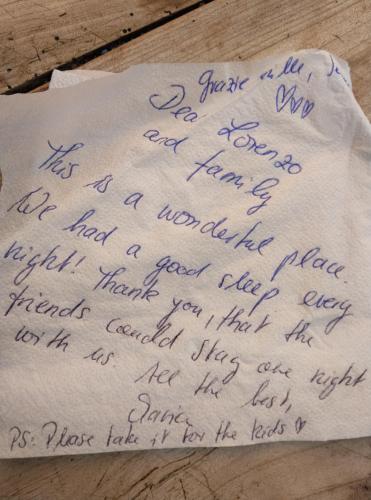 Grazie mille,
Dear Lorenzo
and family
This is a wonderful place.
We had a good sleep every
night! Thank you, that the
friends could stay one night
with us.
All the best,
PS: Please take it for the kids ♡